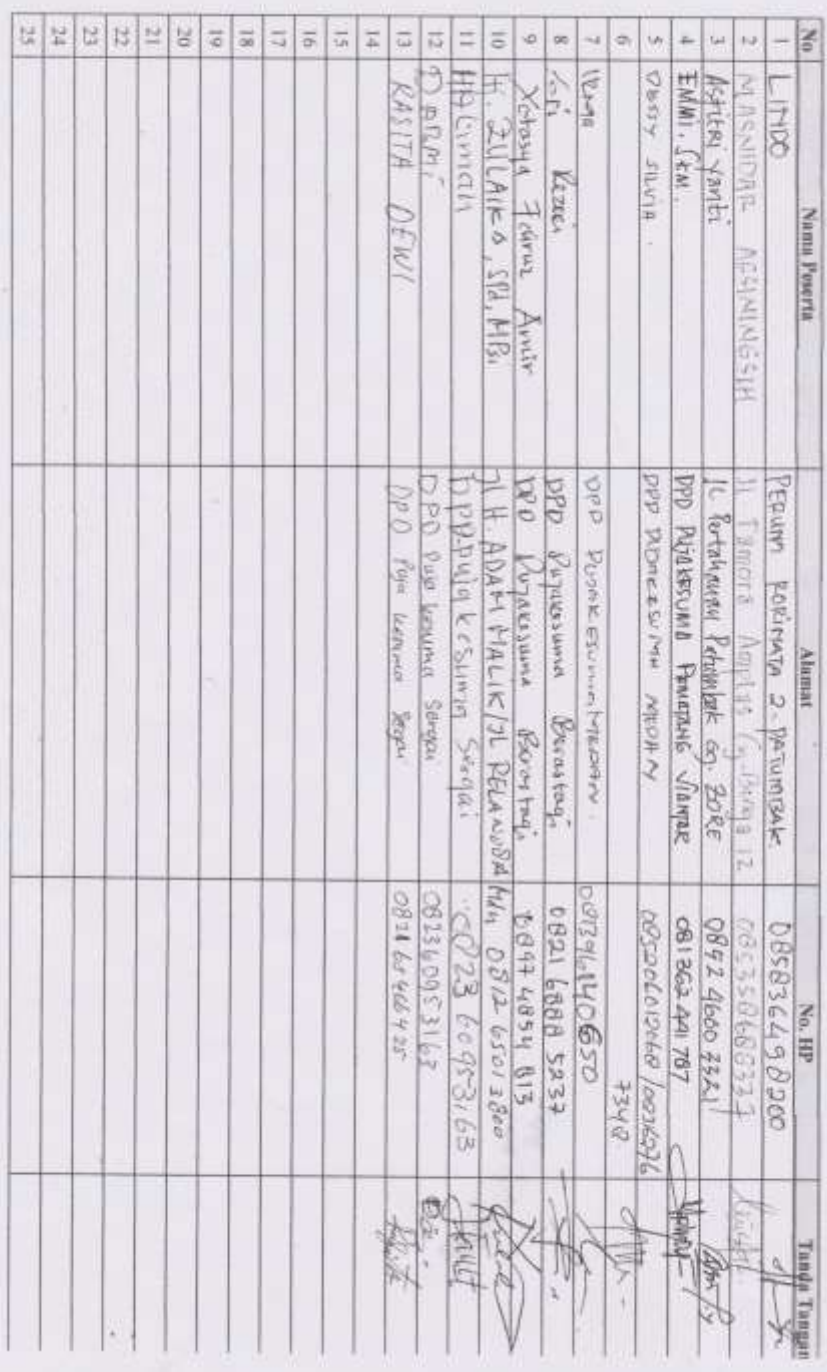 No Nama Peserta Alamat No. HP Tanda Tangan
1 LINDO PERUM RORINATA 2. PATUMBAK 085836498200
2 MASNIDAR AFSININGSIH JL Tamora Amplas Gg. Bunga 12 085358688337
3 Asfitri yanti JL Pertahanan Patumbak Gg. ZORE 0892 4600 2321
4 EMMI. SKM. DPD PUJAKESUMA PEMATANG SIANTAR 081 362 441 787
5 DESSY SILVIA. DPD PUJAKESUMA MEDAN
6 7348
7 IRMA DPD PUJAKESUMA MEDAN. 081396140650
8 Rezeki DPD Pujakesuma Berastagi 0821 6888 5237
9 Yatasya Fairuz Amir DPD Pujakesuma Berastagi 0897 4854 813
10 H. ZULAIKA, SPd, MPsi Jl H. ADAM MALIK/JL 0812 6501 3800
11 HALimah DPD.pujakesuma Sergai 0823 60953163
12 DPD Puja kesuma Sergai 082360953163
13 RASITA DEWI DPD Puja kesuma Sergai
14
15
16
17
18
19
20
21
22
23
24
25